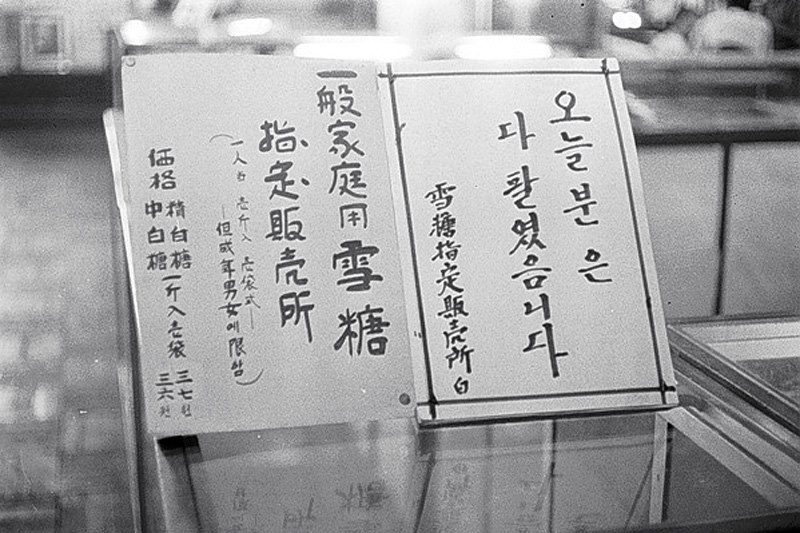 오늘분은
다 팔였음니다
雪糖指定販売所 白
一般家庭用雪糖
指定販売所
(一人当 壱斤入 壱袋式—
—但成年男女에限함)
価格 精白糖 一斤入壱袋 三七원
中白糖 三六원